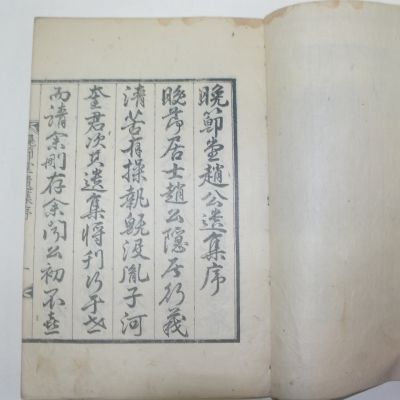 晩節堂趙公遺集序
晩節居士趙公隱居行義
清苦有操執旣没胤子河
奎君次其遺集將刋行于世
而請余刪存余聞公初不喜